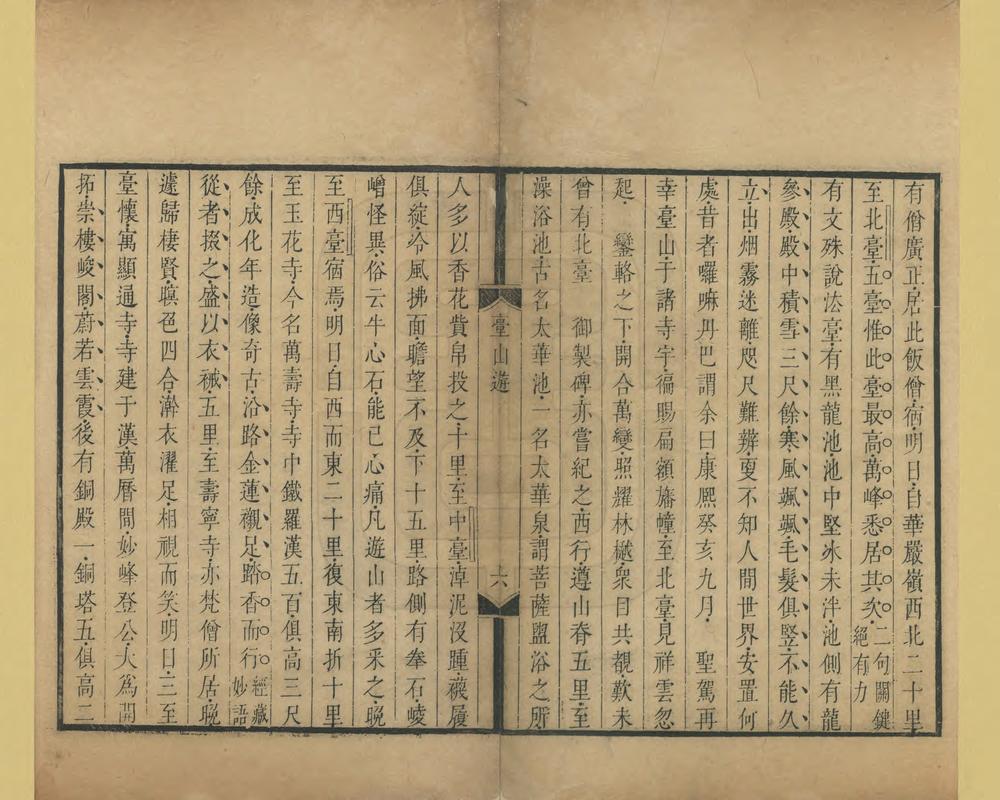 有僧廣正居此飯僧宿明日自華嚴嶺西北二十里
至北臺五臺惟此臺最高萬峰悉居其次二句關鍵絕有力
有文殊說法臺有黑龍池池中堅氷未泮池側有龍
參殿殿中積雪三尺餘寒風颯颯毛髮俱竪不能久
立出烟霧迷離咫尺難辨更不知人間世界安置何
處昔者囉嘛丹巴謂余曰康熙癸亥九月聖駕再
幸臺山于諸寺宇徧賜扁額旛幢至北臺見祥雲忽
起鑾輅之下開合萬變照耀林樾衆目共覩歎未
曾有北臺御製碑亦嘗紀之西行遵山脊五里至
澡浴池古名太華池一名太華泉謂菩薩盥浴之所
臺山遊
六
人多以香花貲帛投之十里至中臺淖泥沒踵襪履
俱綻冷風拂面瞻望不及下十五里路側有拳石崚
嶒怪異俗云牛心石能已心痛凡遊山者多采之晚
至西臺宿焉明日自西而東二十里復東南折十里
至玉花寺今名萬壽寺寺中鐵羅漢五百俱高三尺
餘成化年造像奇古沿路金蓮襯足踏香而行經藏妙語
從者掇之盛以衣裓五里至壽寧寺亦梵僧所居晚
遽歸棲賢暝色四合澣衣濯足相視而笑明日三至
臺懷寓顯通寺寺建于漢萬曆間妙峰登公大爲開
拓崇樓峻閣蔚若雲霞後有銅殿一銅塔五俱高二